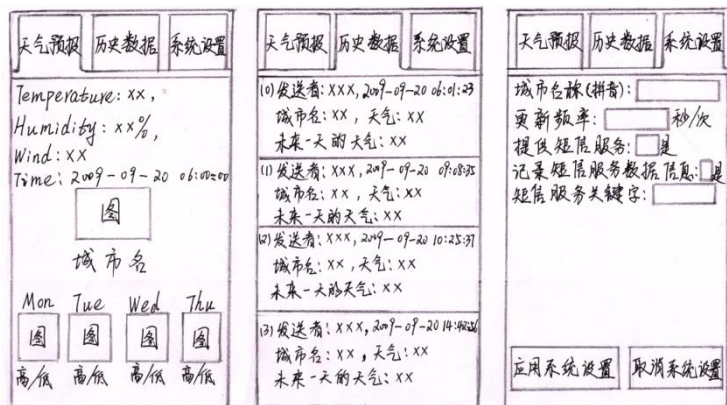 天气预报 历史数据 系统设置
Temperature: xx,
Humidity: xx%,
Wind: xx
Time: 2009-09-20 06:00:00
图
城市名
Mon Tue Wed Thu
图 图 图 图
高/低 高/低 高/低 高/低
天气预报 历史数据 系统设置
(0)发送者: xxx, 2009-09-20 06:01:23
城市名: xx, 天气: xx
未来一天的天气: xx
(1)发送者: xxx, 2009-09-20 09:08:35
城市名: xx, 天气: xx
未来一天的天气: xx
(2)发送者: xxx, 2009-09-20 10:25:37
城市名: xx, 天气: xx
未来一天的天气: xx
(3)发送者: xxx, 2009-09-20
城市名: xx, 天气: xx
未来一天的天气: xx
天气预报 历史数据 系统设置
城市名称(拼音):
更新频率: 秒/次
提供短信服务: 是
记录短信服务数据信息: 是
短信服务关键字:
应用系统设置 取消系统设置